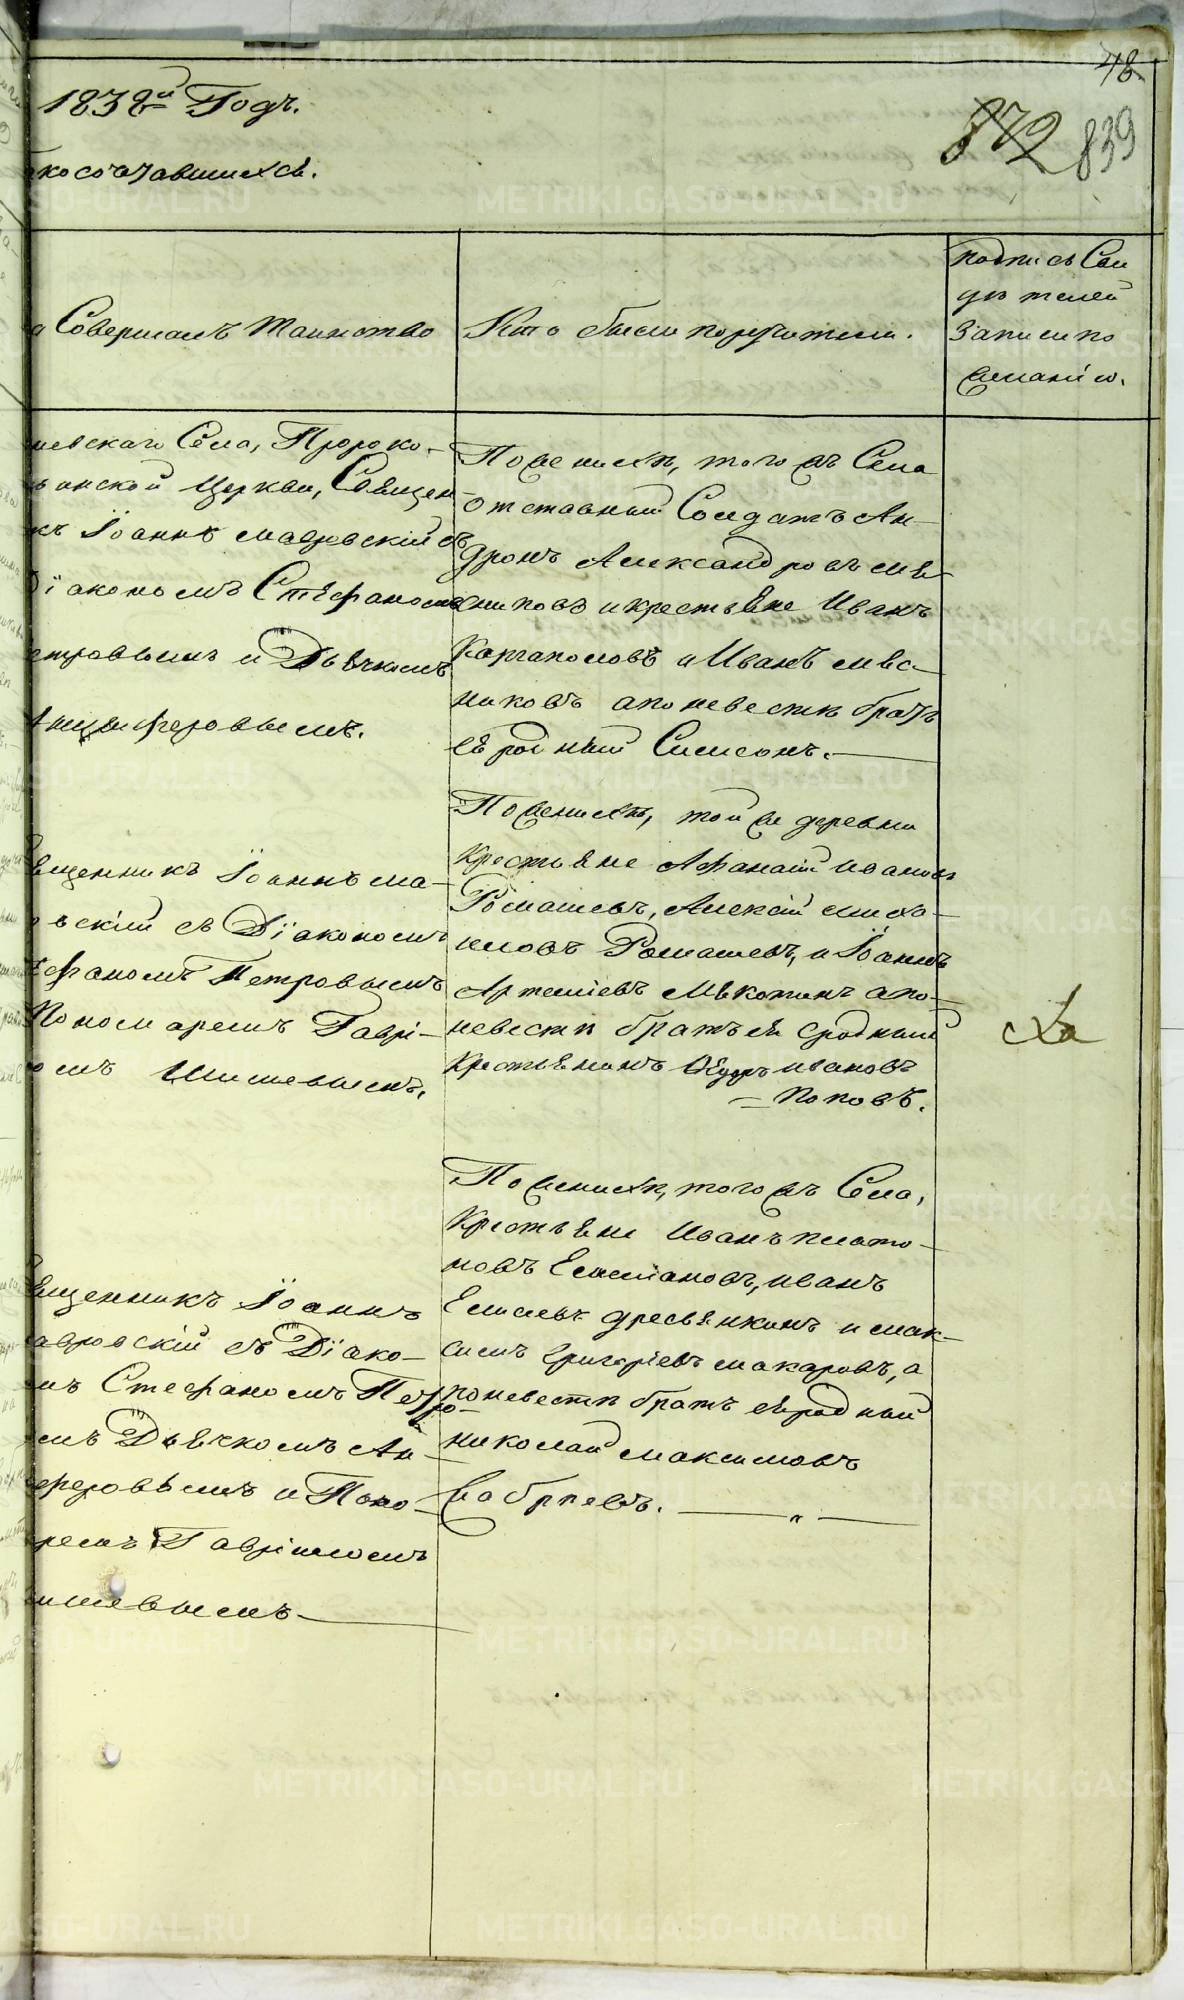 48
1838й Годъ.
872 839
косочетавшихся.
Совершалъ Таинство
Кто были поручители.
подпись Сви
дѣтелей
записи по
желанію.
невскаго Села, Пророко-
инской Церкви, Священ-
къ Іоаннъ Мавровскій съ
Діакономъ Стефаномъ
етровымъ и Дьячкомъ
Анциферовымъ.
По женихѣ, тогожъ Села
отставный Солдатъ Ан-
дронъ Александровъ Мя-
сниковъ и крестьяне Иванъ
Каргаполовъ и Иванъ Мяс-
никовъ а по невестѣ братъ
ея родный Симеонъ.
вященникъ Іоаннъ Ма-
овскій съ Діакономъ
ефаномъ Петровымъ
Пономаремъ Гаврі-
омъ Шишевымъ.
По женихѣ, той же деревни
Крестьяне Афанасій Ивановъ
Ромашевъ, Алексѣй Миха-
иловъ Ромашевъ, и Іоаннъ
Артеміевъ Мѣкотинъ а по
невестѣ братъ ея сродный
Крестьянинъ Ѳедоръ Ивановъ
Поповъ.
вященникъ Іоаннъ
авровскій съ Діако-
мъ Стефаномъ Петро-
мъ Дьячкомъ Ан-
ферровымъ и Поно-
ремъ Гавріиломъ
ишевымъ
По женихѣ, тогожъ Села,
Крестьяне Иванъ Плато-
новъ Емельяновъ, Иванъ
Дресвянкинъ и Мак-
симъ Григорьевъ Макаровъ, а
по невестѣ братъ ея родный
Николай Максимовъ
METRIKI.GASO-URAL.RU